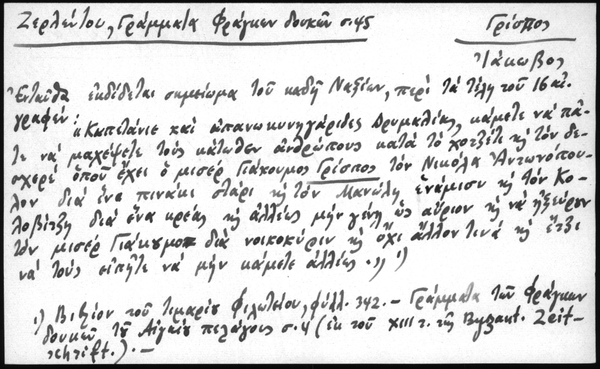 Ζερλέντου, Γράμματα Φράγκων δουκῶν σ. 45
Γρίσπος
Ἰάκωβος
Ἐνταῦθα ἐκδίδεται σημείωμα τοῦ καδῆ Ναξίων, περὶ τὰ τέλη τοῦ 16 αἰ.
γραφέν
"Καπετάνιε καὶ ἀπανωκυνηγάριδες Δρυμαλίας, κάμετε νὰ πᾶ-
τε νὰ μαζέψετε τοὺς κάτωθεν ἀνθρώπους κατὰ τὸ χοτζέτι κὴ τὸν δε-
φτερὲ ὁποῦ ἔχει ὁ μισὲρ Γιάκουμος Γρίσπος τὸν Νικόλα Ἀντωνόπου-
λον διὰ ἕνα πινάκι στάρι κὴ τὸν Μανώλη ἑνάμισυ κὴ τὸν Κο-
λοβίτζη διὰ ἕνα κρέας κὴ ἀλλέως μὴν γένη ὡς αὔριον κὴ νὰ ἠξεύρουν
τὸν μισὲρ Γιάκουμον διὰ νοικοκύριν κὴ ὄχι ἄλλον τινὰ κὴ ἔτζι
νὰ τοὺς εἰπῆτε νὰ μὴν κάμετε ἀλλέως." 1)
1) Βιβλίον τοῦ τιμαρίου Φιλωτείου, φύλλ. 342. — Γράμματα τῶν Φράγκων
δουκῶν τοῦ Αἰγαίου πελάγους σ. 4 (ἐκ τοῦ XIII τ. τῆς Byzant. Zeit-
schrift.). —